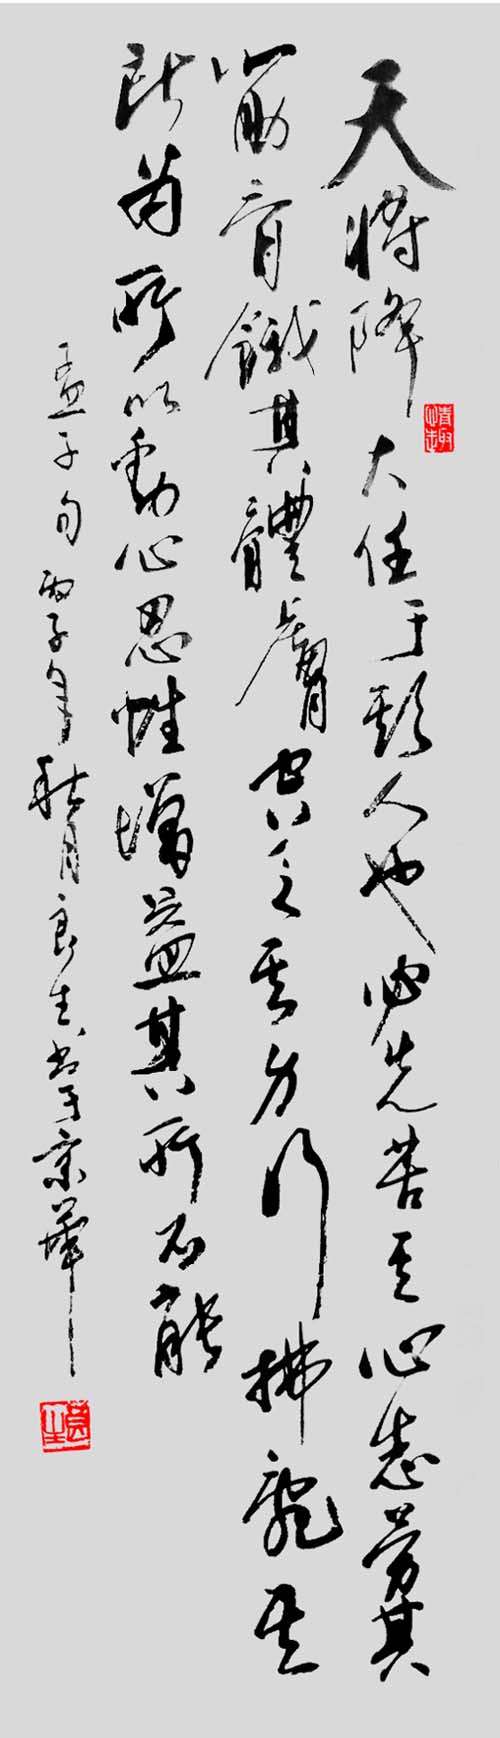 天將降大任于斯人也必先苦其心志勞其
筋骨餓其體膚空乏其身行拂亂其
所為所以動心忍性增益其所不能
孟子句丙子年秋月良生書于京華
情趣